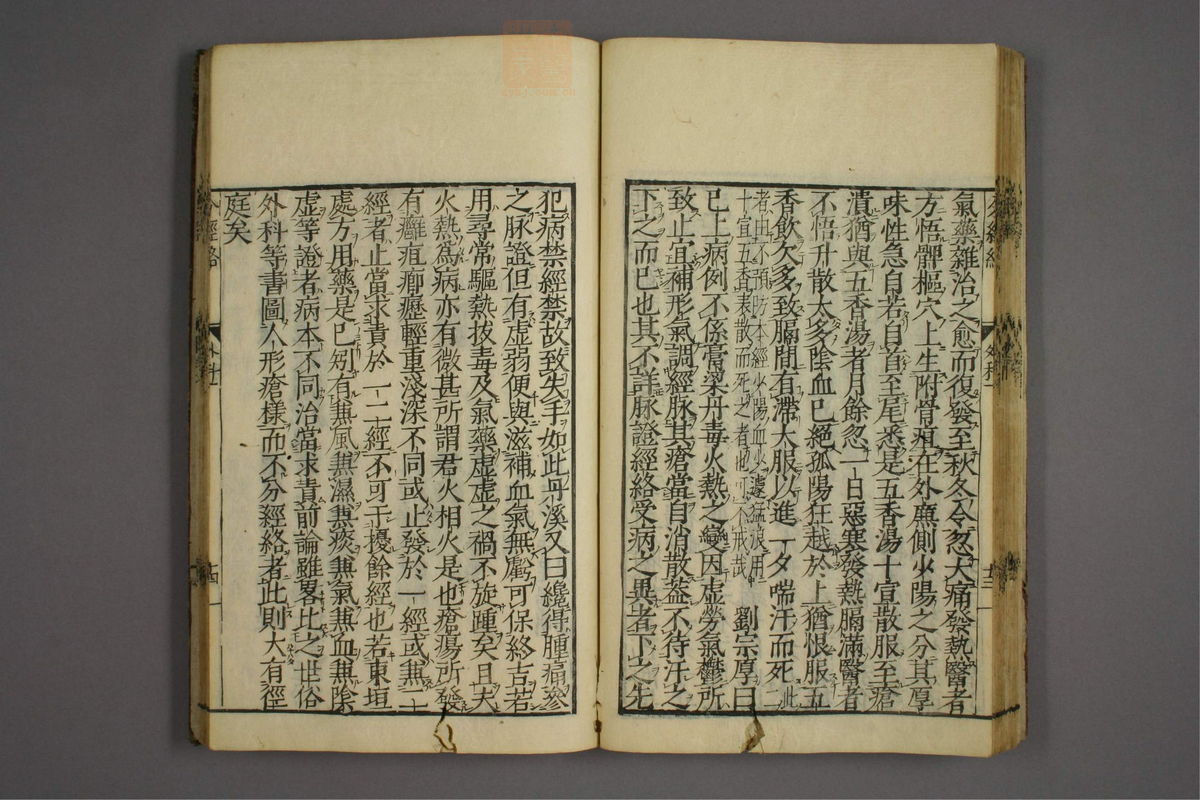 氣藥雜治之愈而復發至秋冬令忽大痛發熱醫者
方悟髀樞穴上生附骨疽在外廉側少陽之分其厚
味性急自若自首至尾悉是五香湯十宣散服至瘡
潰猶與五香湯者月餘忽一日惡寒發熱膈滿醫者
不悟升散太多陰血已絕孤陽狂越於上猶恨服五
香飲欠多致膈間有滯大服以進一夕喘汗而死此二
者由不預防本經少陽血少遽猛浪用
十宣五香表散而死之者也可不戒哉 劉宗厚曰
已上病例不係膏粱丹毒火熱之變因虛勞氣鬱所
致止宜補形氣調經脉其瘡當自消散葢不待汗之
下之而已也其不詳脉證經絡受病之異者下之先
犯病禁經禁故致失手如此丹溪又曰纔得腫痛參
之脉證但有虛弱便與滋補血氣無虧可保終吉若
用尋常驅熱拔毒及氣藥虛虛之禍不旋踵矣且夫
火熱爲病亦有微甚所謂君火相火是也瘡瘍所發
有癰疽癤癧輕重淺深不同或止發於一經或兼二
經者止當求責於一二經不可干擾餘經也若東垣
處方用藥是已矧有兼風兼濕兼痰兼氣兼血兼陰
虛等證者病本不同治當求責前論雖畧比之世俗
外科等書圖人形瘡樣而不分經絡者此則大有徑
庭矣